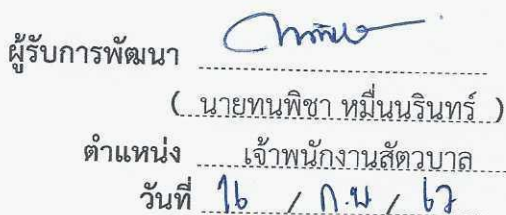 ผู้รับการพัฒนา
( นายทนพิชา หมื่นนรินทร์ )
ตำแหน่ง เจ้าพนักงานสัตวบาล
วันที่ 16 / ก.พ / 67